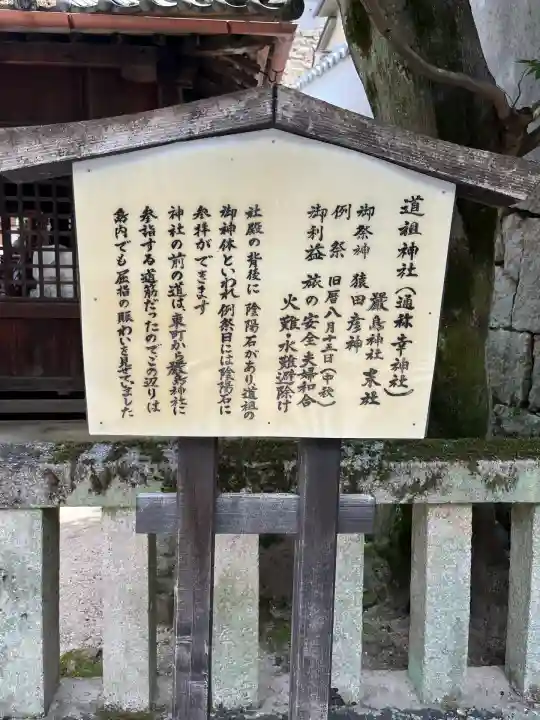 道祖神社(通称幸神社)
厳島神社 末社
御祭神 猿田彦神
例祭 旧暦八月十五日(中秋)
御利益 旅の安全 夫婦和合
火難、水難避除け
社殿の背後に陰陽石があり道祖の
御神体といわれ例祭日には陰陽石に
参拝ができます
神社の前の道は、東町から厳島神社に
参詣する道筋だったのでこの辺りは
島内でも屈指の賑わいを見せていました